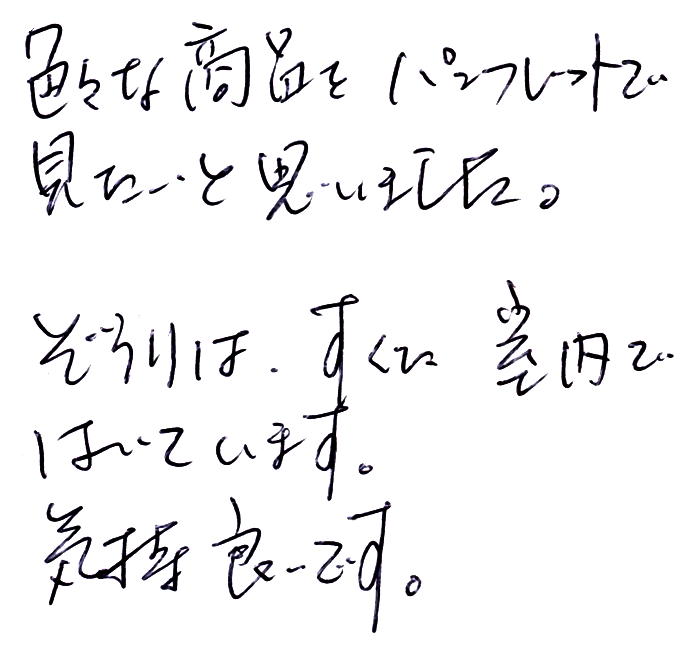 色々な商品をパンフレットで
見たいと思いました。
ぞうりは、すぐに室内で
はいています。
気持良いです。